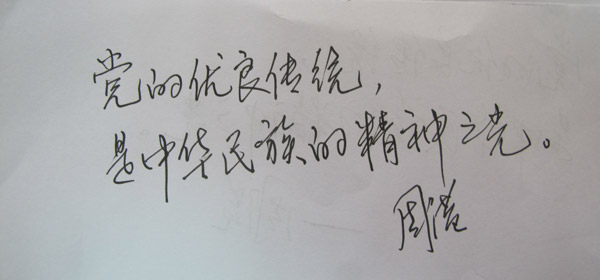 党的优良传统，
是中华民族的精神之光。
周